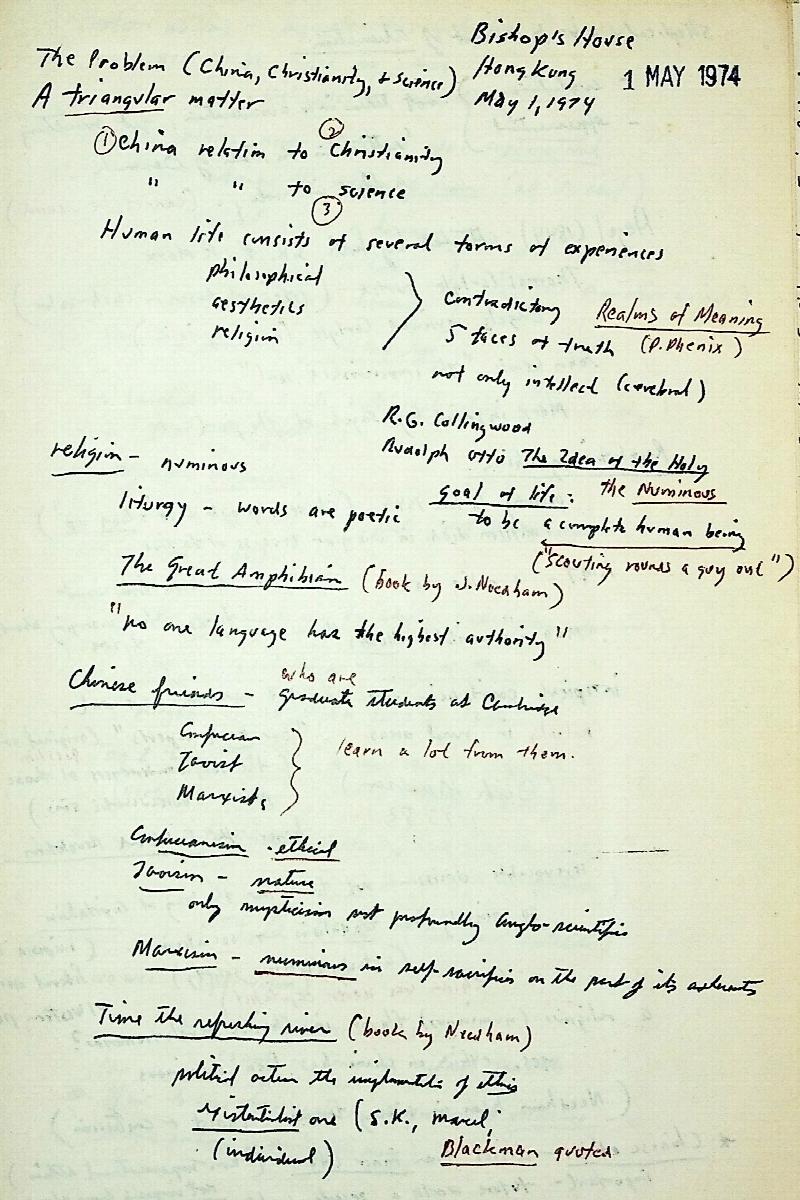 Bishop's House
Hong Kong
May 1, 1974
1 MAY 1974
The Problem (China, Christianity, & science)
A triangular matter
① China relation to ② Christianity
" " to science
③
Human life consists of several forms of experiences
philosophical
aesthetics
religion
contradictory Realms of Meaning
5 faces of truth (P. Phenix)
not only intellect (cerebral)
R.G. Collingwood
Rudolph Otto The Idea of the Holy
religion - numinous
goal of life: the Numinous
liturgy - words are poetic
to be a complete human being
("scouting rounds a guy out")
The Great Amphibian (book by J. Needham)
"no one language has the highest authority"
who are
Chinese friends - graduate students at Cambridge
Confucian
Taoist
Marxists
learn a lot from them.
Confucianism - ethical
Taoism - nature
only mysticism not profoundly anglo-scientific
Marxism - numinous in self-sacrifice on the part of its adherents
Time the refreshing river (book by Needham)
political action the of ethics
existentialist one (S.K., Marcel,
(individual) Blackman quoted